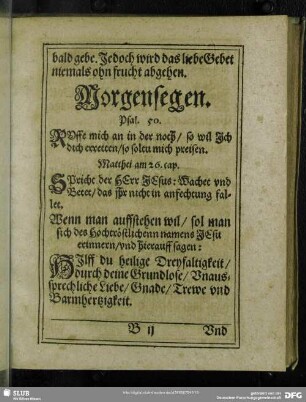 bald gebe. Jedoch wird das liebe Gebet
niemals ohn frucht abgehen.
Morgensegen.
Psal. 50.
RVffe mich an in der noth/ so wil Ich
dich erretten/ so soltu mich preisen.
Matthei am 26. cap.
SPricht der HErr JEsus: Wachet vnd
Betet/ das jhr nicht in anfechtung fal-
let.
Wenn man auffstehen wil/ sol man
sich des Hochtröstlichenn namens JEsu
erinnern/ vnd hierauff sagen:
HIlff du heilige Dreyfaltigkeit/
durch deine Grundlose/ Vnaus-
sprechliche Liebe/ Gnade/ Trewe vnd
Barmhertzigkeit.
B ij Vnd
SLUB
DFG